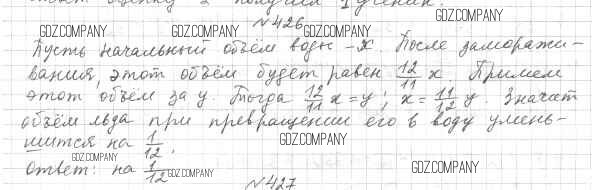 GDZ.COMPANY
№426
GDZ.COMPANY GDZ.COMPANY GDZ.COMPANY
Пусть начальный объём воды – x. После заморажи-
вания, этот объём будет равен 12/11 x. Примем
этот объём за y. Тогда 12/11 x = y; x = 11/12 y. Значит
объём льда при превращении его в воду умень-
шится на 1/12.
GDZ.COMPANY
GDZ.COMPANY
Ответ: на 1/12
GDZ.COMPANY GDZ.COMPANY
№427